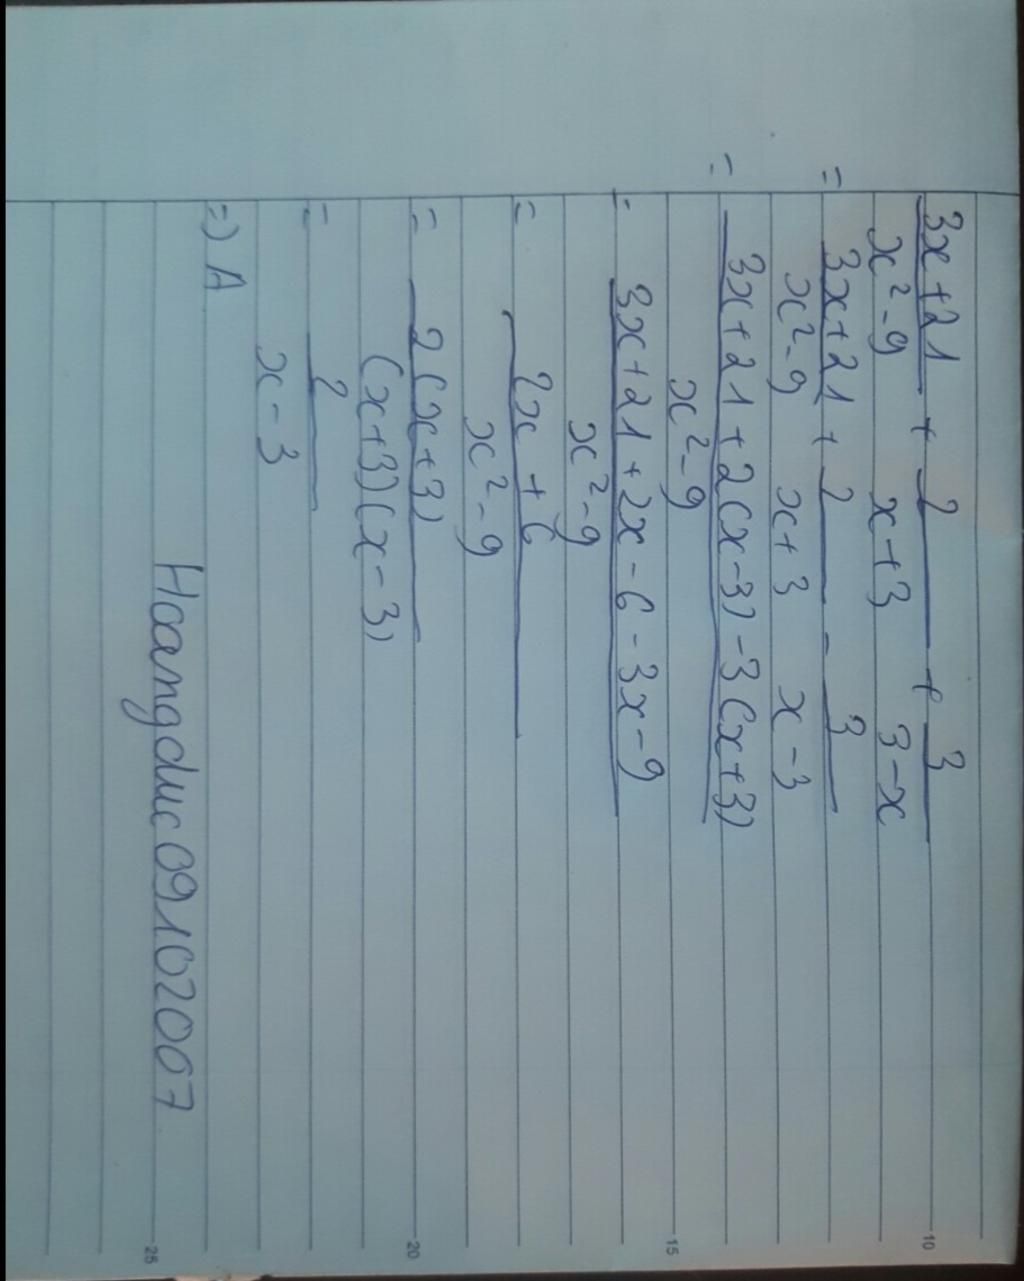 3x+21/x²-9 + 2/x+3 + 3/3-x
= 3x+21/x²-9 + 2/x+3 - 3/x-3
= 3x+21+2(x-3)-3(x+3)/x²-9
= 3x+21+2x-6-3x-9/x²-9
= 2x+6/x²-9
= 2(x+3)/(x+3)(x-3)
= 2/x-3
=) A
Hoangduc09102007
10
15
20
25